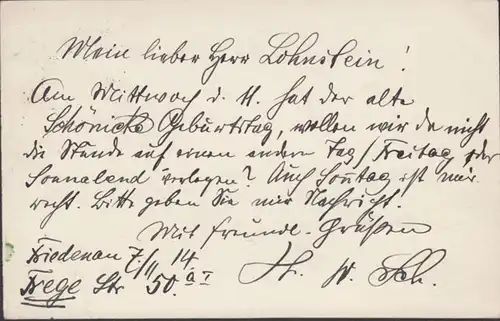 Mein lieber Herr Lohnstein!
Am Mittwoch d. 11. hat der alte
Schönicke Geburtstag, wollen wir da nicht
die Stunde auf einen andern Tag/Freitag oder
Sonnabend verlegen? Auch Sonntag ist mir
recht. Bitte geben Sie mir Nachricht.
Mit freundl. Grüßen
Friedenau 7./II. 14
Frege Str 50. a I
H. W. Sch.